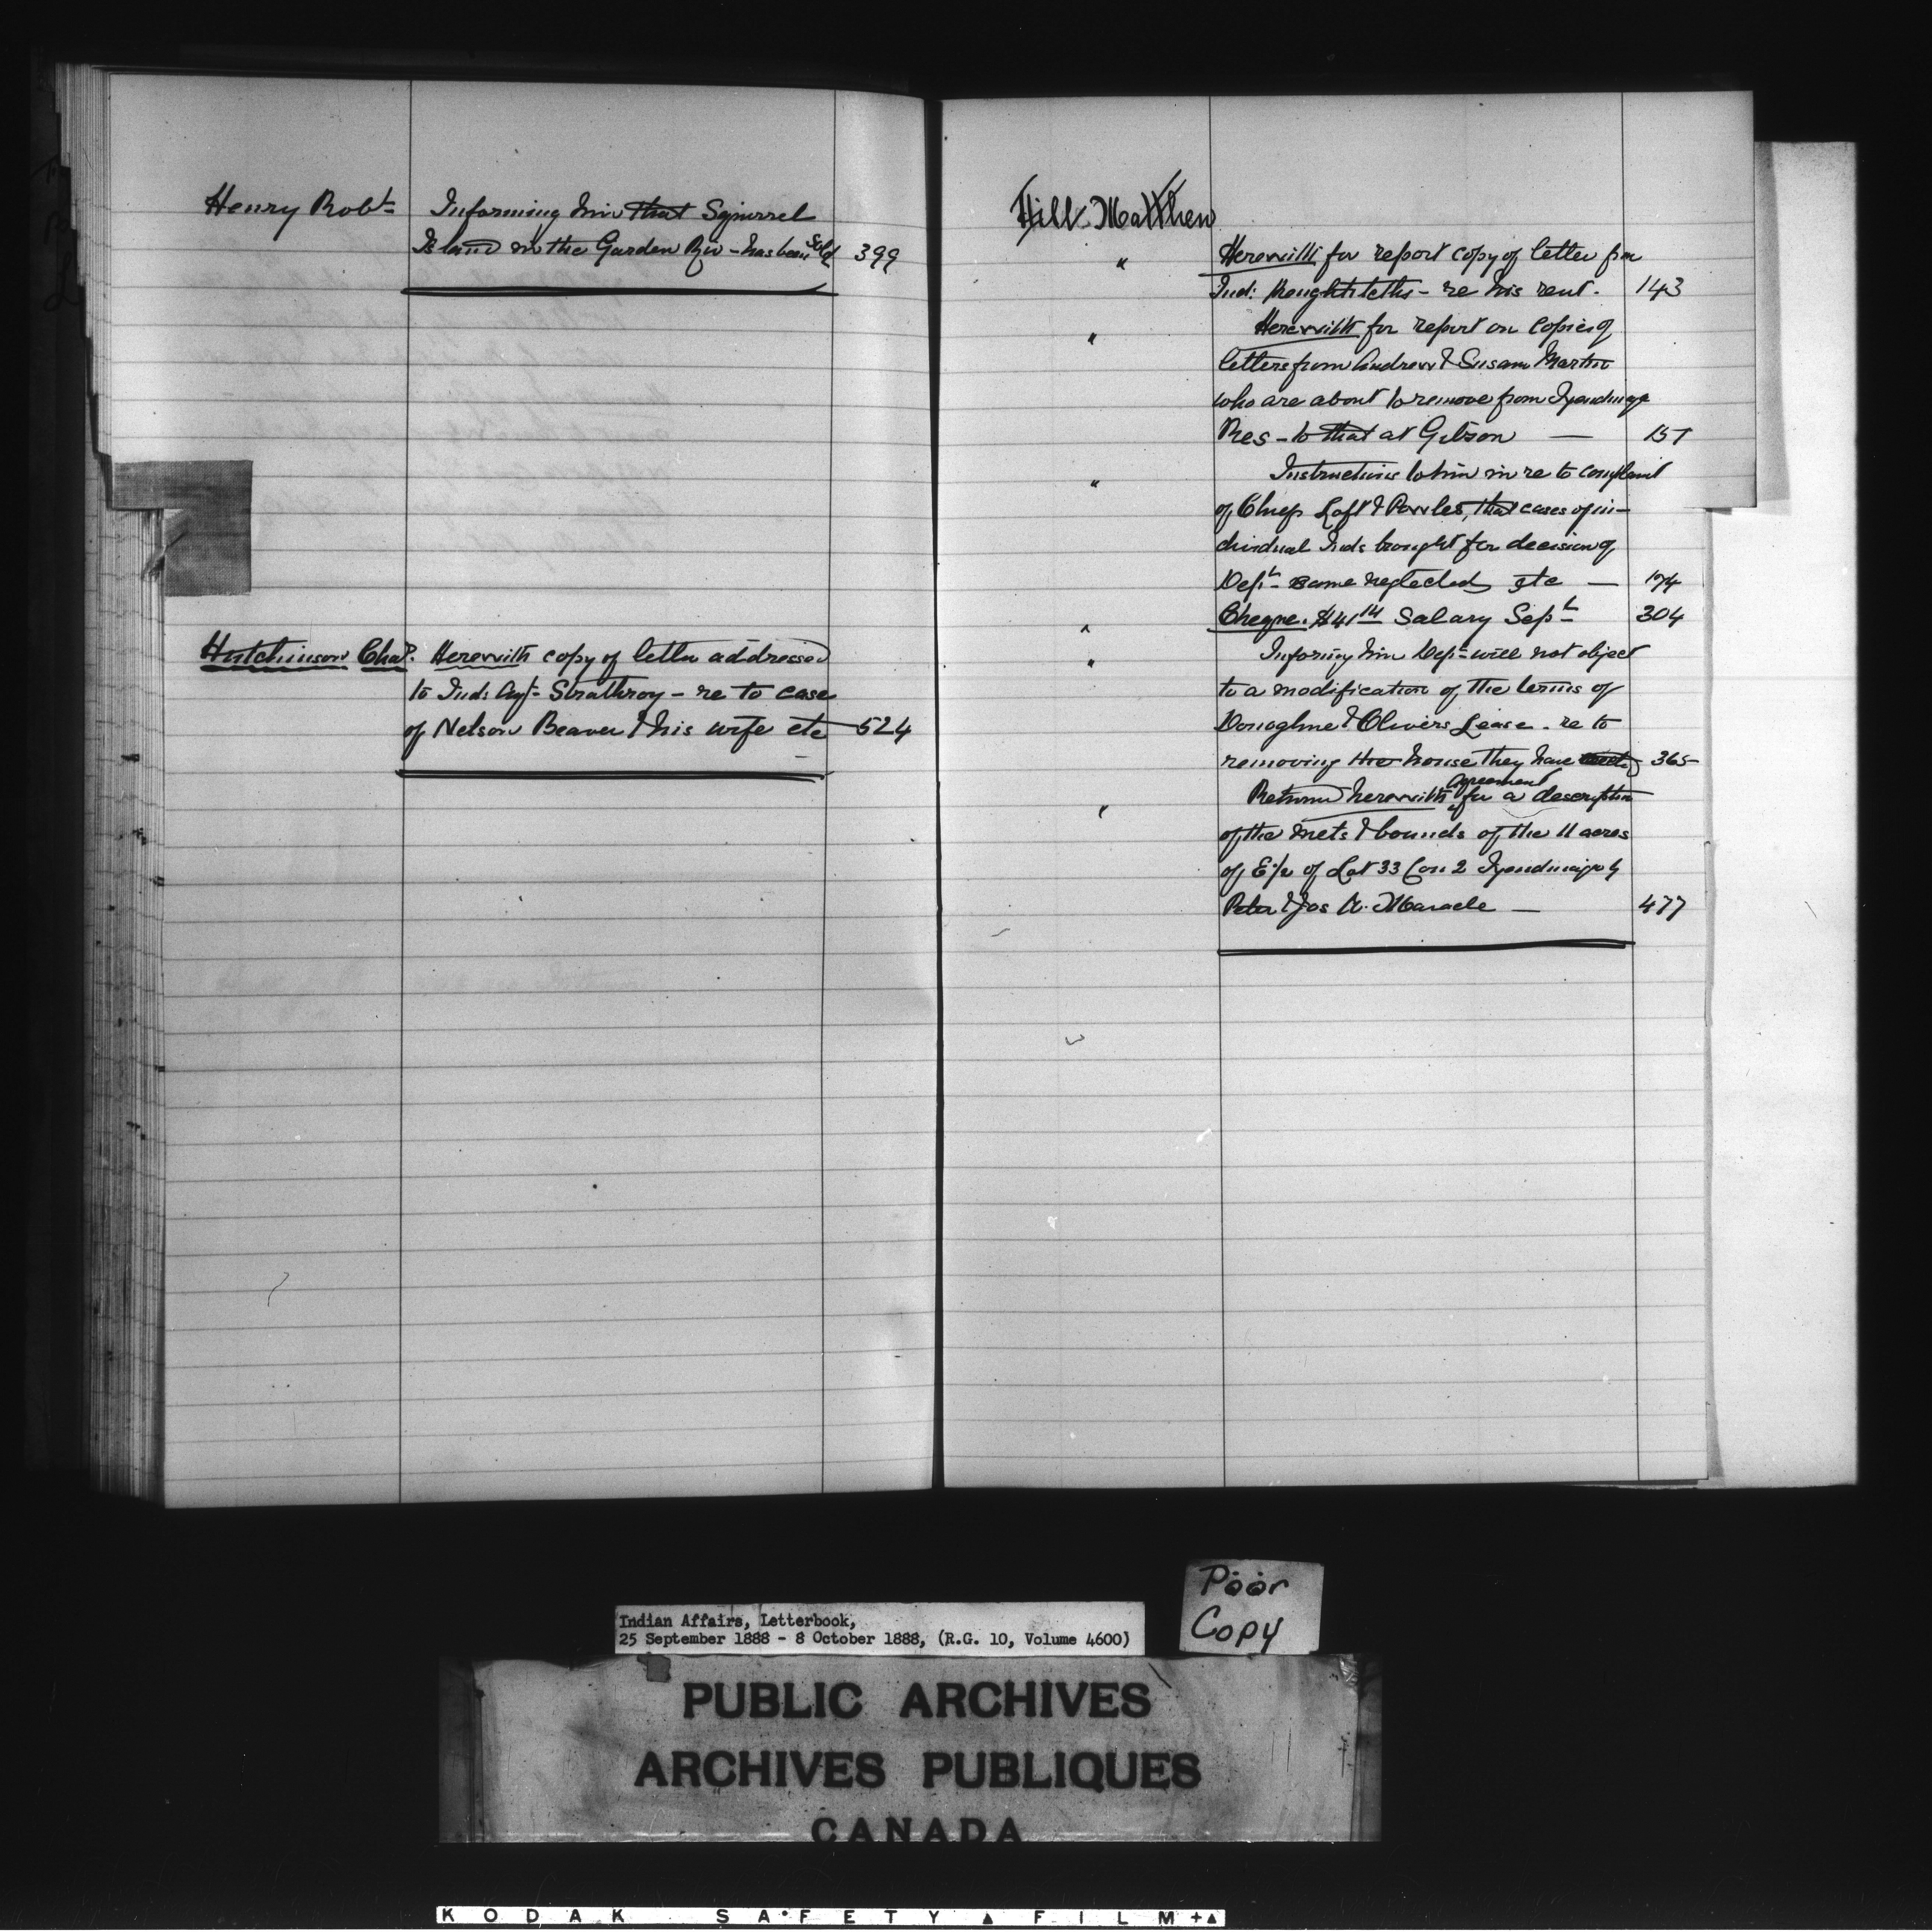 Henry Robt Informing him that Squirrel
Island in the Garden Riv - has been sold 399
Hutchinson Chas. Herewith copy of letter addressed
to Inds Agt - Strathroy - re to case
of Nelson Beaver & his wife etc 524
Hill Matthew
" Herewith for report copy of letter from
Ind: - re his rent. 143
" Herewith for report on copies of
letters from Andrew & Susan Martin
who are about to remove from Tyendinaga
Res - to that at Gibson — 157
" Instructions to him in re to complaint
of Chiefs Loft & Powles, that cases of in-
dividual Inds brought for decision of
Dept - same neglected etc — 174
" Cheque. $41 14 Salary Sept 304
" Informing him Dept will not object
to a modification of the terms of
Donoghue & Olivers Lease. re to
removing the house they have 365
" Return herewith agreement for a description
of the mets & bounds of the 11 acres
of E 1/2 of Lot 33 Con 2 Tyendinaga by
Peter & Jos A. Maracle — 477
Poor
Copy
Indian Affairs, Letterbook,
25 September 1888 - 8 October 1888, (R.G. 10, Volume 4600)
PUBLIC ARCHIVES
ARCHIVES PUBLIQUES
CANADA
KODAK SAFETY FILM